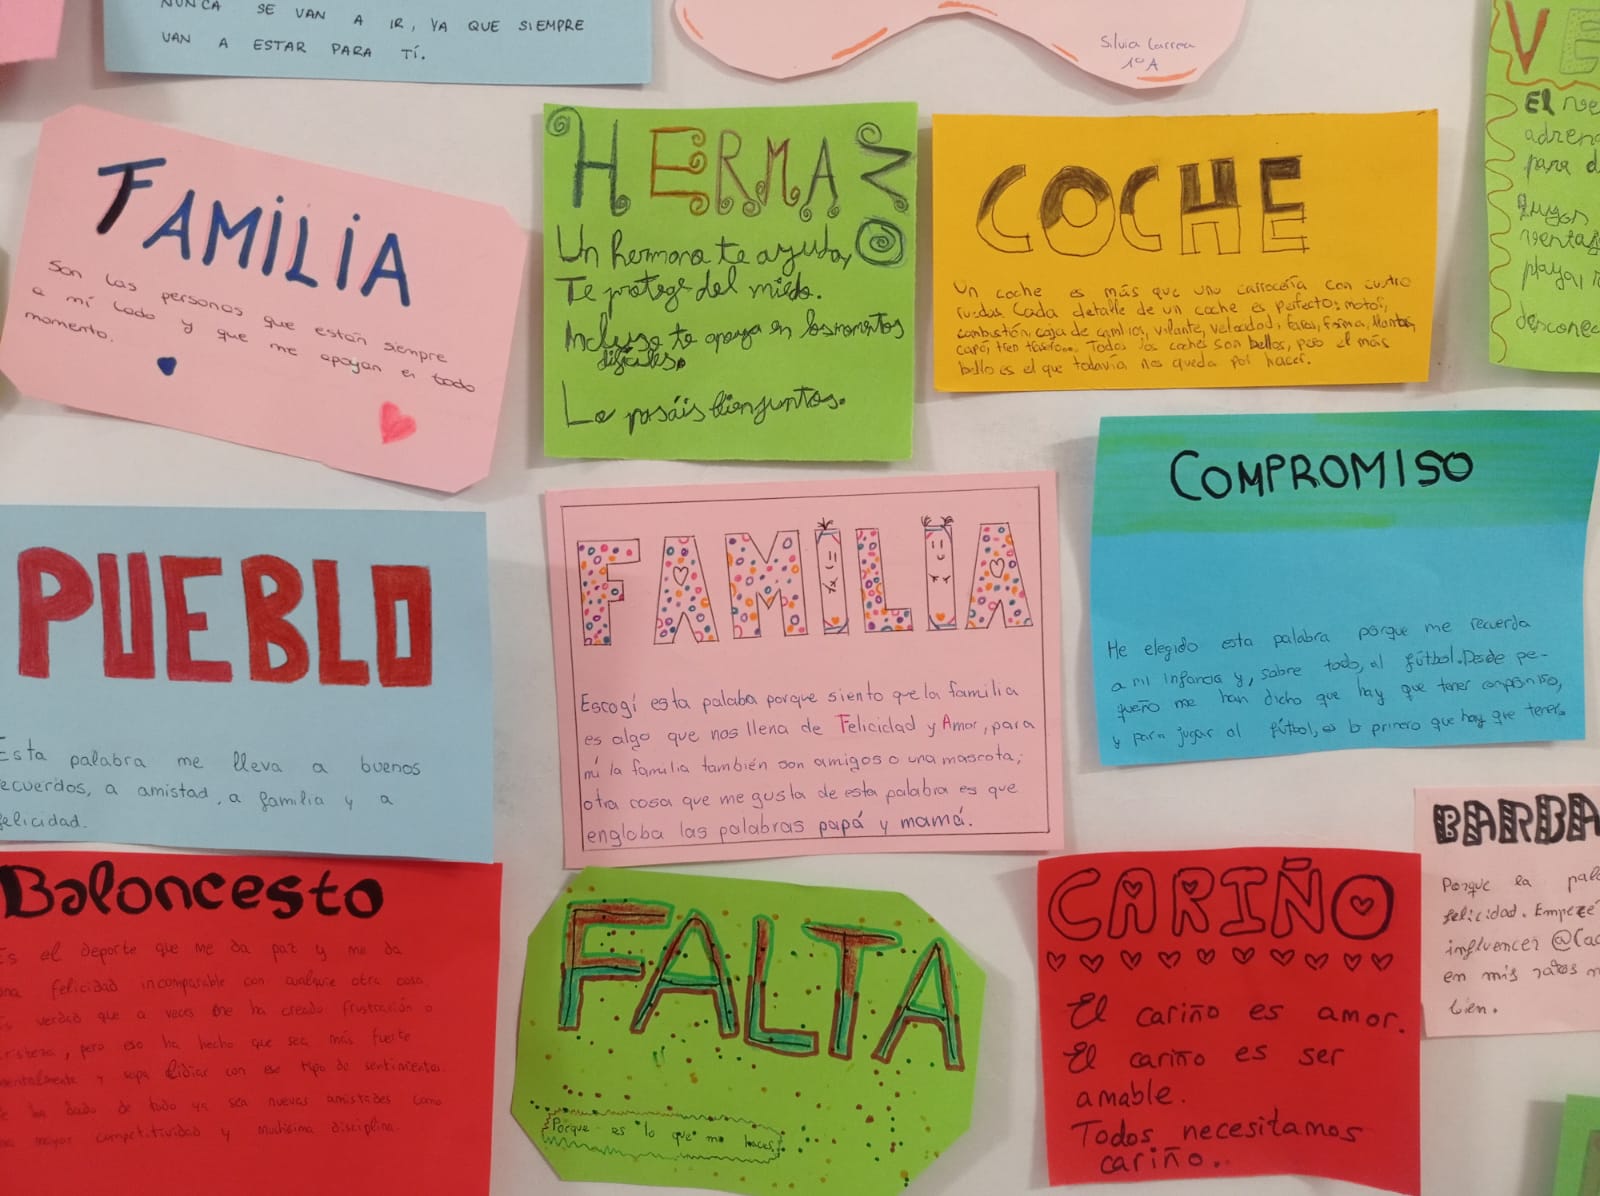 NUNCA SE VAN A IR, YA QUE SIEMPRE
VAN A ESTAR PARA TÍ.
Silvia Correa
1º A
FAMILIA
Son las personas que están siempre
a mi lado y que me apoyan en todo
momento.
HERMANO
Un hermano te ayuda,
Te protege del miedo.
Incluso te apoya en los momentos
difíciles.
Lo pasáis bien juntos.
COCHE
Un coche es más que una carrocería con cuatro
ruedas. Cada detalle de un coche es perfecto: motor,
combustión, caja de cambios, volante, velocidad, faros, forma, llantas,
capó, tren trasero... Todos los coches son bellos, pero el más
bello es el que todavía nos queda por hacer.
VE
El ve
adren
para d
venta
playa,
desconec
PUEBLO
Esta palabra me lleva a buenos
recuerdos, a amistad, a familia y a
felicidad.
FAMILIA
Escogí esta palaba porque siento que la familia
es algo que nos llena de Felicidad y Amor, para
mí la familia también son amigos o una mascota;
otra cosa que me gusta de esta palabra es que
engloba las palabras papá y mamá.
COMPROMISO
He elegido esta palabra porque me recuerda
a mi infancia y, sobre todo, al fútbol. Desde pe-
queño me han dicho que hay que tener compromiso,
y para jugar al fútbol, es lo primero que hay que tener.
Baloncesto
Es el deporte que me da paz y me da
una felicidad incomparable con cualquier otra cosa.
Es verdad que a veces me ha creado frustración o
tristeza, pero eso ha hecho que sea más fuerte
mentalmente y sepa lidiar con ese tipo de sentimientos.
Me ha dado de todo ya sea nuevas amistades como
una mayor competitividad y muchísima disciplina.
FALTA
Porque es lo que me haces
CARIÑO
El cariño es amor.
El cariño es ser
amable.
Todos necesitamos
cariño.
BARBA
Porque la pala
felicidad. Empecé
influencer @(ac
en mis ratos m
bien.